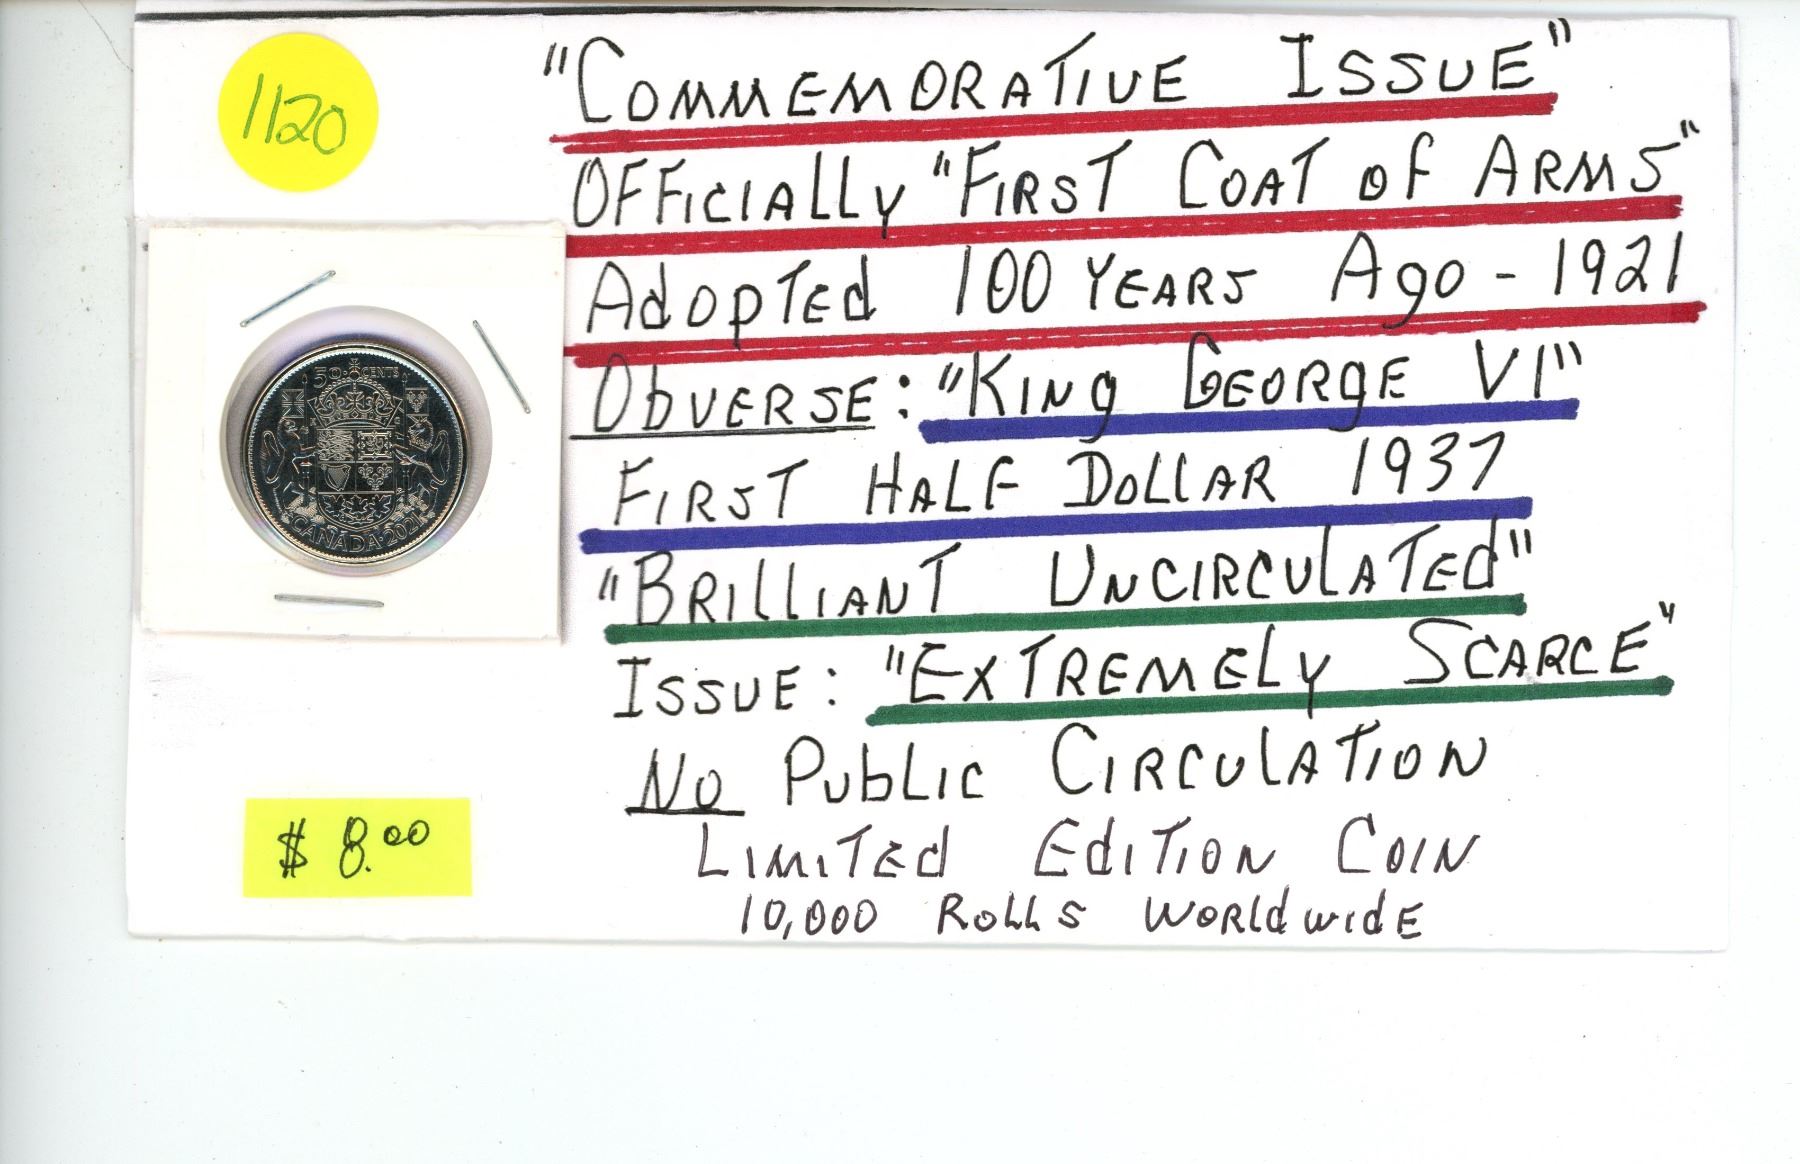 1120
"COMMEMORATIVE ISSUE"
OFFICIALLY "FIRST COAT OF ARMS"
ADOPTED 100 YEARS AGO - 1921
OBVERSE: "KING GEORGE VI"
FIRST HALF DOLLAR 1937
"BRILLIANT UNCIRCULATED"
ISSUE: "EXTREMELY SCARCE"
NO PUBLIC CIRCULATION
LIMITED EDITION COIN
10,000 ROLLS WORLDWIDE
50 CENTS
CANADA · 2021
$ 8.00